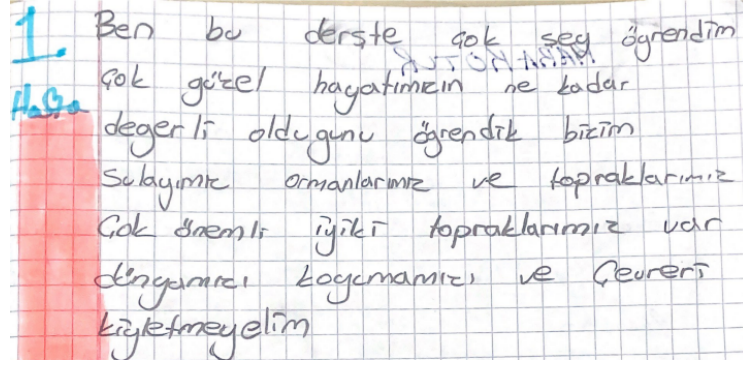 1. Hafta
Ben bu derste çok şey öğrendim
çok güzel hayatımızın ne kadar
degerli oldugunu öğrendik bizim
Sulayımız ormanlarımız ve topraklarımız
Çok önemli iyiki topraklarımız var
dünyamızı koyumamızı ve Çevreri
kiyletmeyelim